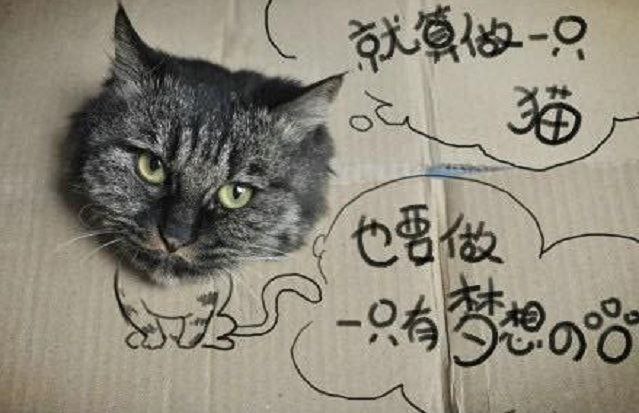 就算做一只
猫
也要做
一只有梦想の